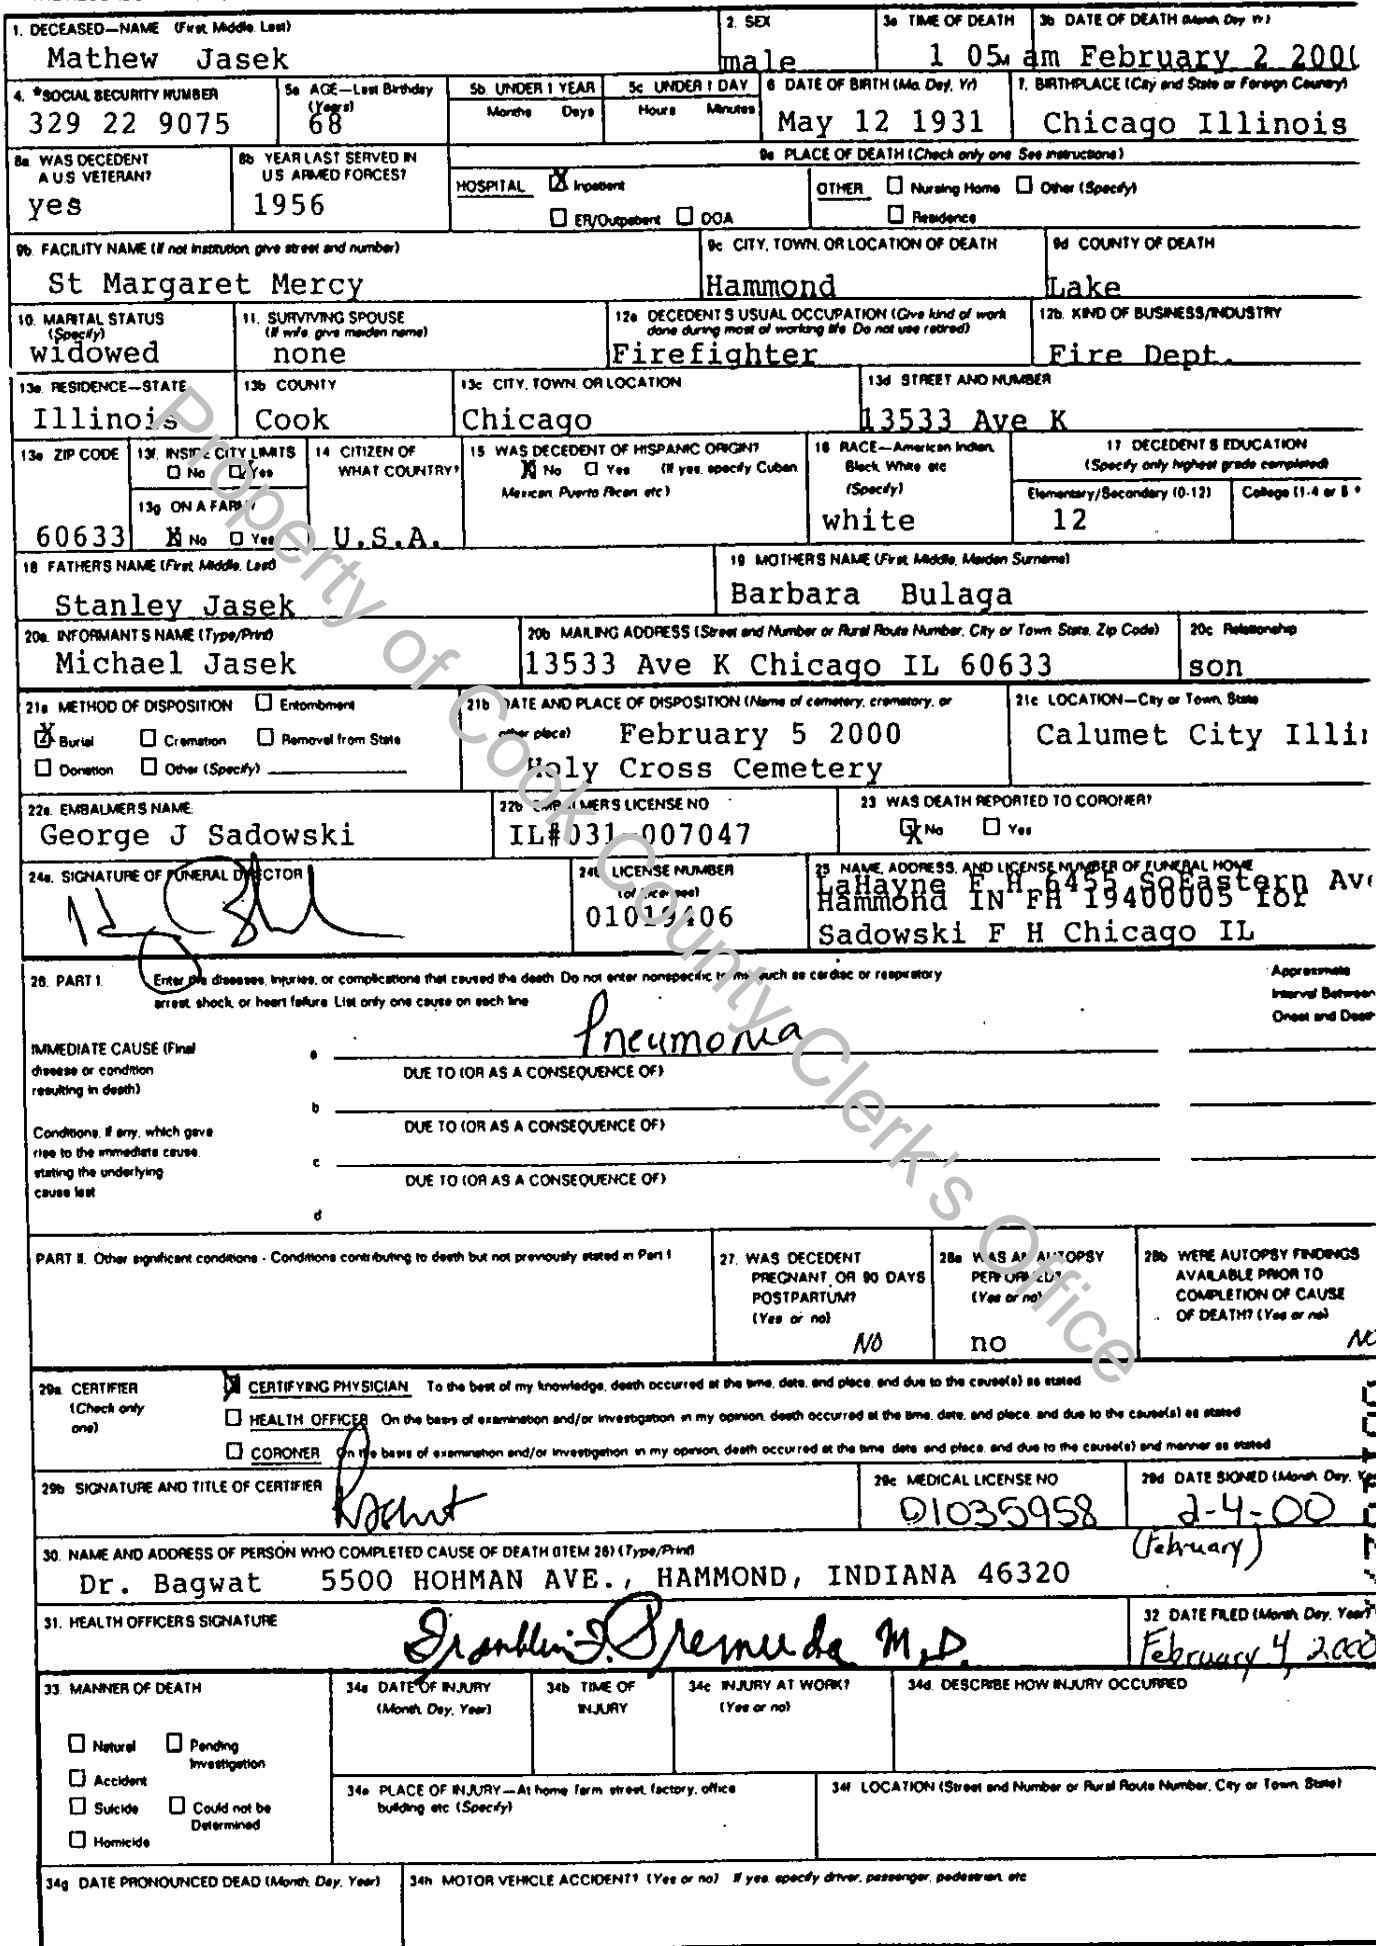 1. DECEASED—NAME (First, Middle, Last)
2. SEX
3a TIME OF DEATH
3b DATE OF DEATH (Month Day Yr)
Mathew Jasek
male
1 05 am
February 2 200
4. *SOCIAL SECURITY NUMBER
5a AGE—Last Birthday (Years)
5b UNDER 1 YEAR
Months Days
5c UNDER 1 DAY
Hours Minutes
6 DATE OF BIRTH (Mo. Day, Yr)
7. BIRTHPLACE (City and State or Foreign Country)
329 22 9075
68
May 12 1931
Chicago Illinois
8a. WAS DECEDENT A U.S VETERAN?
8b YEAR LAST SERVED IN US ARMED FORCES?
9a PLACE OF DEATH (Check only one See instructions)
yes
1956
HOSPITAL X Inpatient
ER/Outpatient DOA
OTHER Nursing Home Other (Specify)
Residence
9b. FACILITY NAME (If not institution, give street and number)
9c CITY, TOWN, OR LOCATION OF DEATH
9d COUNTY OF DEATH
St Margaret Mercy
Hammond
Lake
10. MARITAL STATUS (Specify)
11. SURVIVING SPOUSE (If wife, give maiden name)
12a DECEDENT S USUAL OCCUPATION (Give kind of work done during most of working life Do not use retired)
12b. KIND OF BUSINESS/INDUSTRY
widowed
none
Firefighter
Fire Dept.
13a. RESIDENCE—STATE
13b COUNTY
13c CITY, TOWN, OR LOCATION
13d STREET AND NUMBER
Illinois
Cook
Chicago
13533 Ave K
13e ZIP CODE
13f. INSIDE CITY LIMITS
No X Yes
13g ON A FARM?
X No Yes
14 CITIZEN OF WHAT COUNTRY?
15 WAS DECEDENT OF HISPANIC ORIGIN?
X No Yes (If yes, specify Cuban
Mexican, Puerto Rican etc)
16 RACE—American Indian, Black, White etc (Specify)
17 DECEDENT S EDUCATION
(Specify only highest grade completed)
Elementary/Secondary (0-12)
College (1-4 or 5 +
60633
U.S.A.
white
12
18 FATHER'S NAME (First, Middle, Last)
19 MOTHER'S NAME (First, Middle, Maiden Surname)
Stanley Jasek
Barbara Bulaga
20a. INFORMANT S NAME (Type/Print)
20b MAILING ADDRESS (Street and Number or Rural Route Number, City or Town State, Zip Code)
20c Relationship
Michael Jasek
13533 Ave K Chicago IL 60633
son
21a METHOD OF DISPOSITION Entombment
X Burial Cremation Removal from State
Donation Other (Specify)
21b DATE AND PLACE OF DISPOSITION (Name of cemetery, crematory, or other place)
February 5 2000
Holy Cross Cemetery
21c LOCATION—City or Town, State
Calumet City Illi
22a. EMBALMER S NAME:
22b EMBALMER S LICENSE NO
23 WAS DEATH REPORTED TO CORONER?
X No Yes
George J Sadowski
IL#031-007047
24a. SIGNATURE OF FUNERAL DIRECTOR
24b LICENSE NUMBER
(of licensee)
01019406
25 NAME, ADDRESS, AND LICENSE NUMBER OF FUNERAL HOME
LaHayne F H 6455 SoEastern Ave
Hammond IN FH 19400005 for
Sadowski F H Chicago IL
26. PART 1. Enter the diseases, injuries, or complications that caused the death Do not enter nonspecific terms such as cardiac or respiratory
arrest, shock, or heart failure List only one cause on each line
Approximate Interval Between Onset and Death
IMMEDIATE CAUSE (Final disease or condition resulting in death)
a Pneumonia
DUE TO (OR AS A CONSEQUENCE OF)
b
DUE TO (OR AS A CONSEQUENCE OF)
Conditions, if any, which gave rise to the immediate cause, stating the underlying cause last
c
DUE TO (OR AS A CONSEQUENCE OF)
d
PART II. Other significant conditions - Conditions contributing to death but not previously stated in Part I
27. WAS DECEDENT PREGNANT, OR 90 DAYS POSTPARTUM? (Yes or no)
NO
28a WAS AN AUTOPSY PERFORMED? (Yes or no)
no
28b WERE AUTOPSY FINDINGS AVAILABLE PRIOR TO COMPLETION OF CAUSE OF DEATH? (Yes or no)
NO
29a. CERTIFIER (Check only one)
X CERTIFYING PHYSICIAN To the best of my knowledge, death occurred at the time, date, and place, and due to the cause(s) as stated
HEALTH OFFICER On the basis of examination and/or investigation in my opinion, death occurred at the time, date, and place, and due to the cause(s) as stated
CORONER On the basis of examination and/or investigation in my opinion, death occurred at the time date and place, and due to the cause(s) and manner as stated
29b SIGNATURE AND TITLE OF CERTIFIER
29c MEDICAL LICENSE NO
01035958
29d DATE SIGNED (Month, Day, Year
2-4-00
(February)
30. NAME AND ADDRESS OF PERSON WHO COMPLETED CAUSE OF DEATH (ITEM 26) (Type/Print)
Dr. Bagwat 5500 HOHMAN AVE., HAMMOND, INDIANA 46320
31. HEALTH OFFICER S SIGNATURE
Franklin J. Premuda M.D.
32 DATE FILED (Month, Day, Year)
February 4, 2000
33 MANNER OF DEATH
Natural Pending Investigation
Accident
Suicide Could not be Determined
Homicide
34a DATE OF INJURY (Month, Day, Year)
34b TIME OF INJURY
34c INJURY AT WORK? (Yes or no)
34d. DESCRIBE HOW INJURY OCCURRED
34e PLACE OF INJURY—At home farm street, factory, office building etc (Specify)
34f LOCATION (Street and Number or Rural Route Number, City or Town, State)
34g DATE PRONOUNCED DEAD (Month, Day, Year)
34h MOTOR VEHICLE ACCIDENT? (Yes or no) If yes, specify driver, passenger, pedestrian, etc
Property of Cook County Clerk's Office